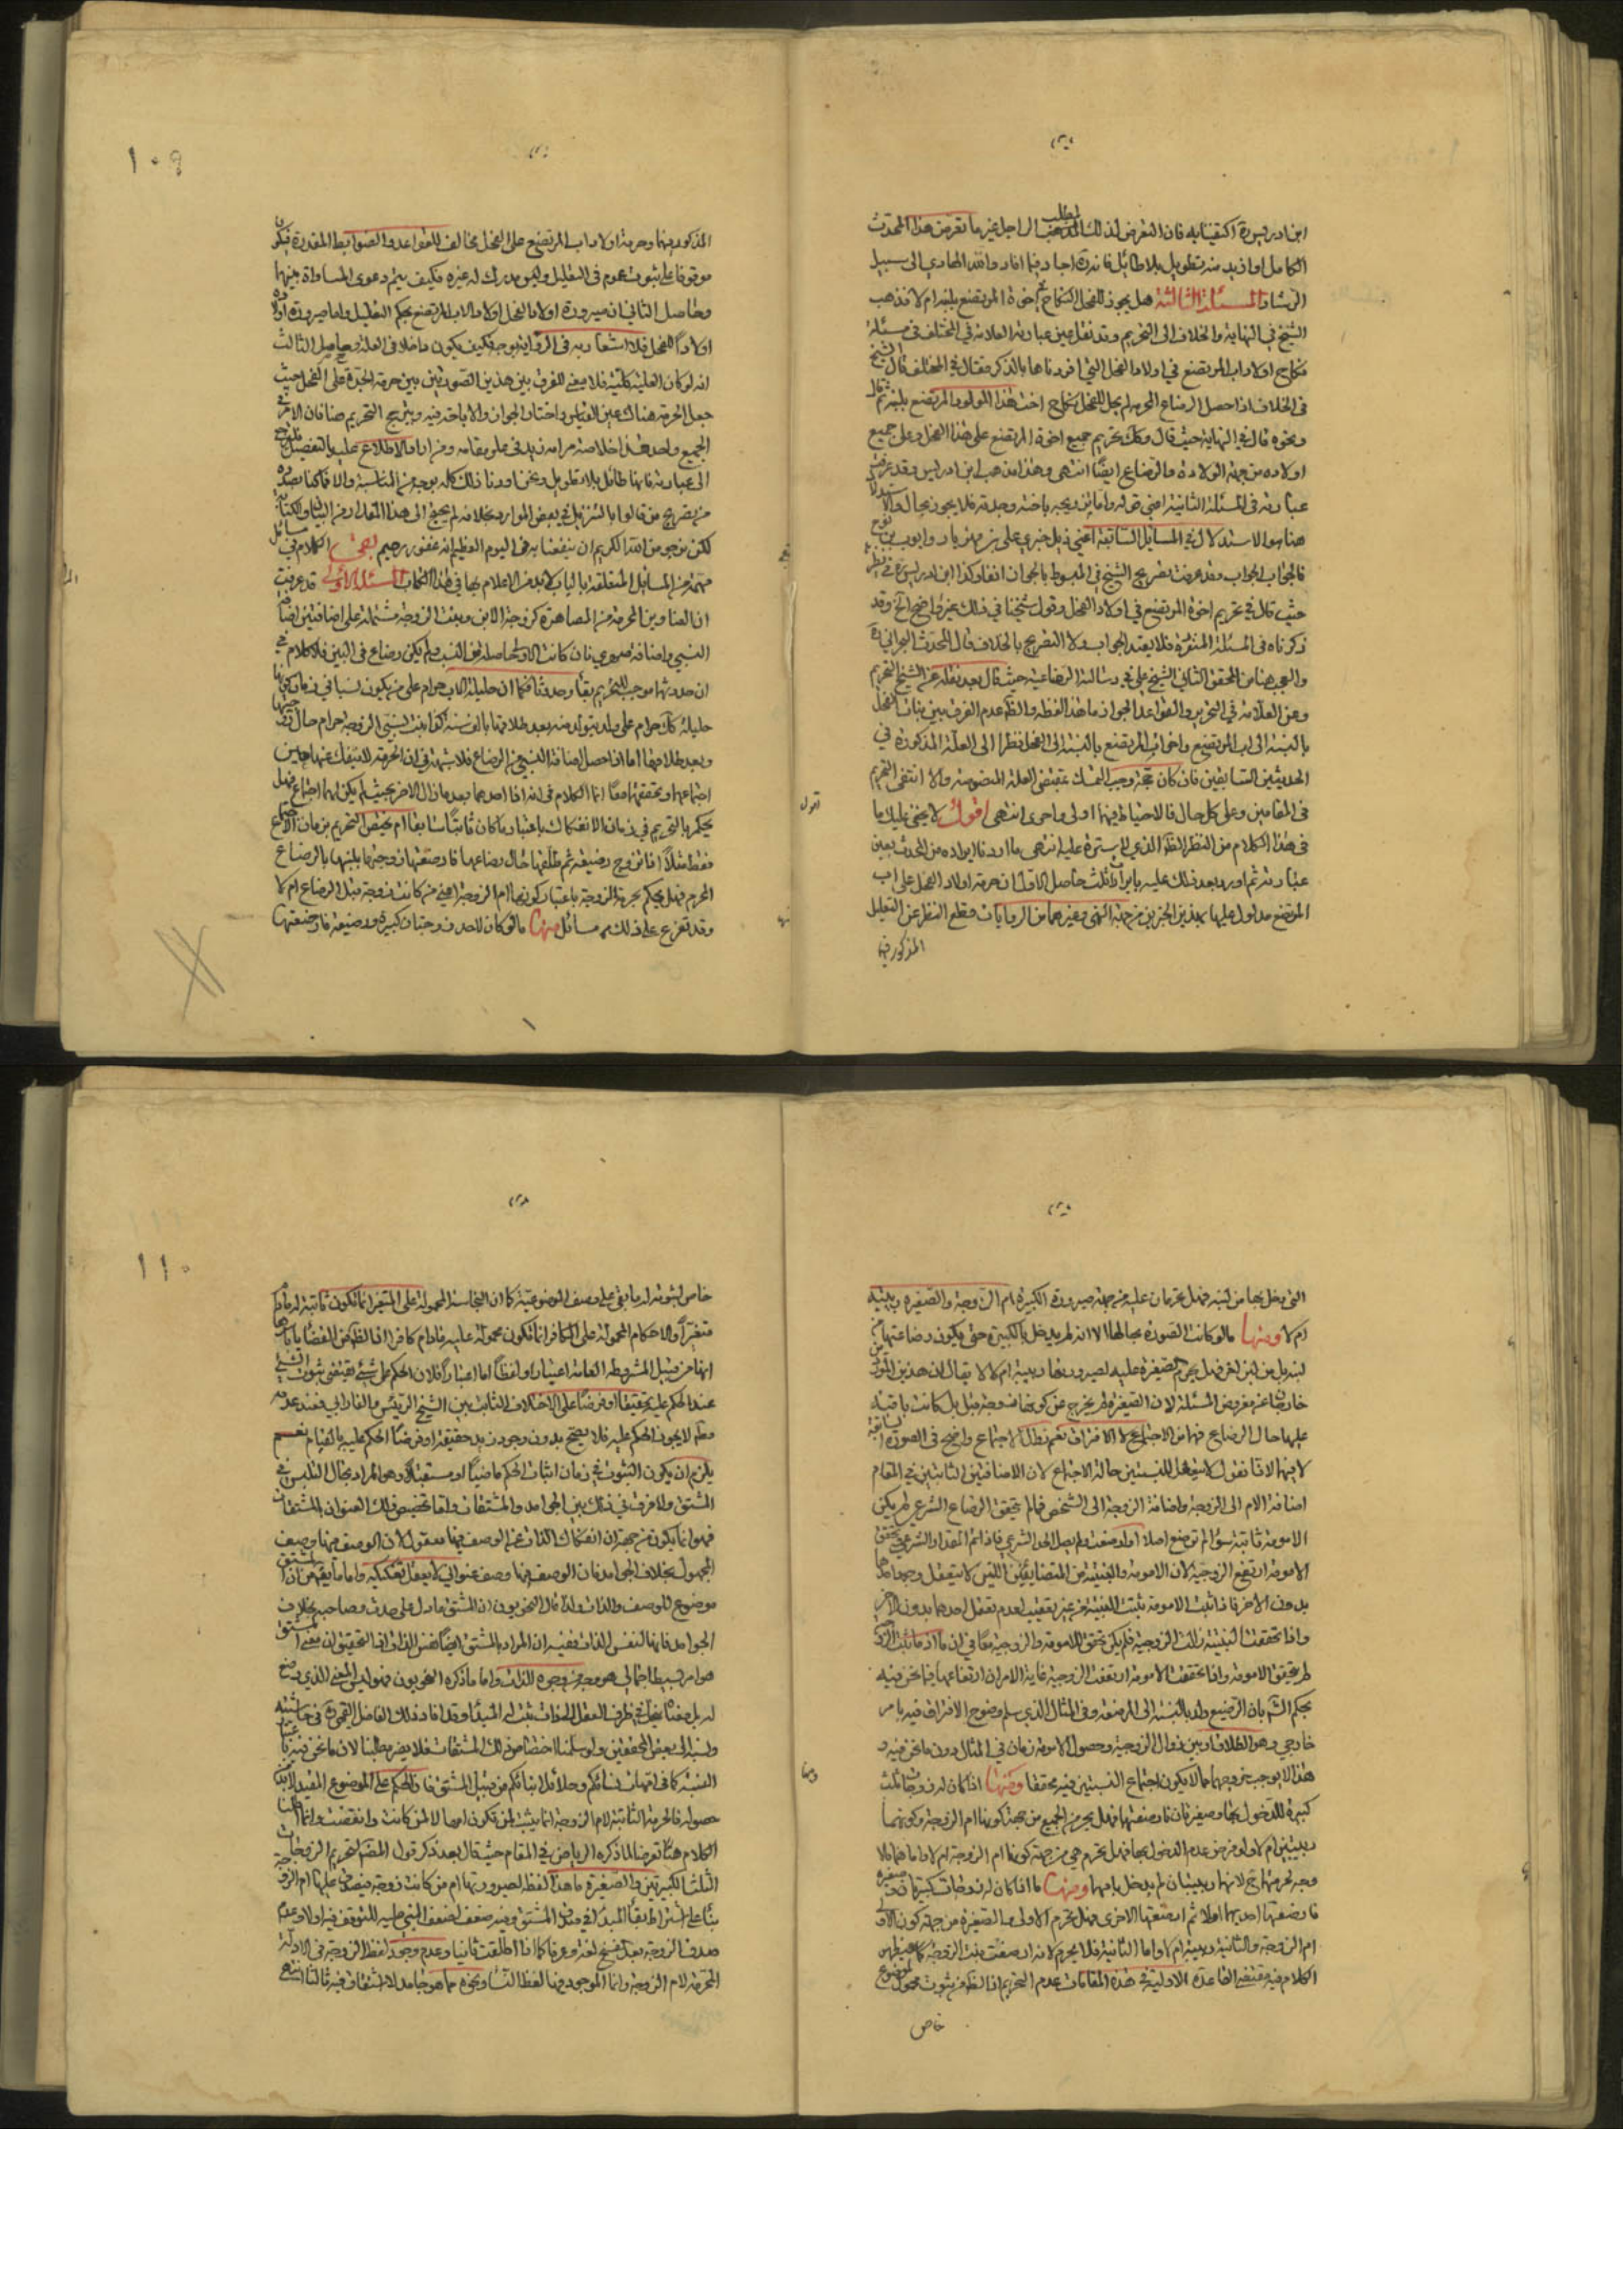 ابن ادريس ره اكتفينا به فان التعرض لذلك المطلب الراجل غير ما تعرض هذا المحدث
الكامل او ازيد منه تطويل بلا طائل فانه قد اجاد فيما افاد والله الهادي الى سبيل
الرشاد المسئلة الثالثة هل يجوز للفحل النكاح في اخوة المرتضع بلبنه ام لا فذهب
الشيخ في النهاية والخلاف الى التحريم وقد نقل عين عبارته العلامة في المختلف في مسئلة
نكاح اولاد اب المرتضع في اولاد الفحل التي افردناها بالذكر فقال في المختلف قال الشيخ
في الخلاف اذا حصل الرضاع المحرم لم يحل للفحل نكاح اخت هذا المولود المرتضع بلبنه ثم قال
ونحوه قال في النهاية حيث قال وكذلك تحريم جميع اخوة المرتضع على هذا الفحل وعلى جميع
اولاده من جهة الولادة والرضاع ايضا انتهى وهذا مذهب ابن ادريس وقد عرفت
عبارته في المسئلة الثانية اعني قوله واما تزويجه باخته وجدته فلا يجوز بحال والاستدلال
هنا هو الاستدلال في المسائل السابقة اعني ذيل خبري علي بن مهزيار وايوب بن نوح
فالجواب الجواب وقد عرفت تصريح الشيخ في المبسوط بالجواز
حيث قال في تحريم اخوة المرتضع في اولاد الفحل وقول شيخنا في ذلك غير واضح الخ وقد
ذكرناه في المسئلة المتقدمة فلا يفيد الجواب ولا التصريح بالخلاف قال المحدث البحراني ره
والعجب هنا من المحقق الثاني الشيخ علي في رسالته الرضاعية حيث قال بعد نقله عن الشيخ التحريم
وعن العلامة في التحرير والقواعد الجواز ما هذا لفظه والظاهر عدم الفرق بين بنات الفحل
بالنسبة الى اب المرتضع واخوات المرتضع بالنسبة الى الفحل نظرا الى العلة المذكورة في
الحديثين السابقين فان كان حجة وجب التمسك بمقتضى العلة المنصوصة والا انتفى التحريم
في المقامين وعلى كل حال فالاحتياط فيهما اولى واحرى انتهى اقول لا يخفى عليك ما
في هذا الكلام من النظر الظاهر الذي لا سترة عليه انتهى ما اردنا ايراده من المحدث بعين
عبارته ثم اورد بعد ذلك عليه بايرادات ثلث حاصل الاول ان حرمة اولاد الفحل على اب
المرتضع مدلول عليها بهذين الخبرين من جهة النهي وغيرهما من الروايات وقطع النظر عن التعليل
المذكور فيها
المذكور فيها وحرمة اولاد اب المرتضع على الفحل مخالف للقواعد والضوابط المقررة فيكون
موقوفا على ثبوت عموم في التعليل وليس مدرك له غيره فكيف يتم دعوى المساواة بينهما
وحاصل الثاني ان صيرورة اولاد الفحل اولاد الاب المرتضع بحكم التعليل واما صيرورة اولاده
اولادا للفحل فلا اشعار به في الرواية بوجه فكيف يكون داخلا في العلة وحاصل الثالث
انه لو كان العلية كلية فلا معنى للفرق بين هذين الصورتين وبين حرمة الجدة على الفحل حيث
جعل الحرمة هناك عين القياس واختار الجواز والاباحة فيه وترجيح التحريم هنا فان الامر في
الجميع واحد هذا خلاصة مرامه زيد في علو مقامه ومن اراد الاطلاع عليه بالتفصيل فليراجع
الى عبارته فانها طائل بلا تطويل ونحن اوردنا ذلك كله بوجه من المناسبة والا فلكنا بصدده
من تصريح من قالوا بالتنزيل في بعض الموارد بخلافه لم يحتج الى هذا المقدار من البيان والكتابة
لكن نرجو من الله الكريم ان ينفعنا به في اليوم العظيم انه غفور رحيم بقي الكلام في مسائل
مهمة من المسائل المتعلقة بالباب لا بد من الاعلام بها في هذا الكتاب المسئلة الاولى قد عرفت
ان العناوين المحرمة من المصاهرة كزوجة الابن وبنت الزوجة مشتملة على اضافتين اضافة
النسبي واضافة صهري فان كانت الاولى حاصلة من النسب ولم يكن رضاع في البين فلا كلام في
ان حدوثها موجب للتحريم بقاء وحدوثا فكما ان حليلة الاب حرام على من يكون نسبا في زمان كونها
حليلة كذلك حرام على ولد يتولد منه بعد طلاقها بالف سنة وكذا بنت النسبي الزوجة حرام حال زوجيتها
وبعد طلاقها اما اذا حصل اضافة النسبي من الرضاع فلا شبهة في ان الحرمة لا تنفك عنها حين
اجتماعهما وتحققهما معا انما الكلام في انه اذا احدهما بعد ما زال الاخر بحيث لم يكن لهما اجتماع فهل
يحكم بالتحريم في زمان الانفكاك باعتبار ما كان ثابتا سابقا ام يختص التحريم بزمان الاجتماع
فقط مثلا اذا تزوج رضيعة ثم طلقها حال رضاعها فارضعتها زوجته بلبنها بالرضاع
المحرم فهل يحكم بحرمة الزوجة باعتبار كونها ام الزوجة اعني من كانت زوجة قبل الرضاع ام لا
وقد تفرع على ذلك مسائل منها ما لو كان لاحد زوجتان كبيرة ورضيعة فارضعتها
١٠٩
التي دخل بها من لبنه فهل تحرمان عليه من جهة صيرورة الكبيرة ام الزوجة والصغيرة ربيبته
ام لا ومنها ما لو كانت الصورة بحالها الا انه لم يدخل بالكبيرة حتى يكون رضاعتها من
لبنه بل من لبن اخر فهل يحرم الصغيرة عليه لصيرورتها ربيبة ام لا لا يقال ان هذين الفرضين
خارجان عن مفروض المسئلة لان الصغيرة لم يخرج عن كونها زوجة قبل بل كانت باقية
عليها حال الرضاع فهما من الاجتماع لا الافتراق نعم تظل الاجتماع واضح في الصورة السابقة
لا فيهما لانا نقول لا يتعقل للنسبتين حالة الاجتماع لان الاضافتين الثابتتين في المقام
اضافة الام الى الزوجة واضافة الزوجة الى الشخص فما لم يتحقق الرضاع الشرعي لم يكن
الامومة ثابتة سواء لم ترضع اصلا او ارضعت ولم يصل الحد الشرعي فاذا تم المقدار الشرعي تحقق
الامومة ارتفع الزوجية لان الامومة والبنتية من المتضايفين اللتين لا يتعقل وجود احدهما
بدون الاخر فاذا ثبت الامومة ثبتت البنتية من غير تعقيب لعدم تعقل احدهما بدون الاخر
واذا تحققت البنتية زالت الزوجية فلم يكن تحقق الامومة والزوجية معا في ان ما اذ ما ثبت الزوجية
لم يتحقق الامومة واذا تحققت الامومة ارتفعت الزوجية غاية الامر ان ارتفاعها فيما نحن فيه
بحكم الشرع بان الرضيع ولد بالنسبة الى المرضعة وفي المثال الذي سلم وضوح الافتراق فيه بامر
خارجي وهو الطلاق او بين زوال الزوجية وحصول الامومة زمان في المثال دون ما نحن فيه و
هذا لا يوجب خروجهما مما لا يكون اجتماع النسبتين فيه محققا ومنها اذا كان له زوجات ثلث
كبيرة المدخول بها وصغيرتان فارضعتهما فهل يحرم الجميع من جهة كونها ام الزوجة وكونهما
ربيبتين ام لا ولو فرض عدم الدخول بها فهل تحرم هي من جهة كونها ام الزوجة ام لا واما هما فلا
وجه لحرمتهما ح لانهما ربيبتان لم يدخل بامهما ومنها ما اذا كان له زوجات كبيرتان وصغيرة
فارضعتها احديهما اولا ثم ارضعتها الاخرى فهل تحرم الاولى والصغيرة من جهة كون الاولى
ام الزوجة والثانية ربيبة ام لا واما الثانية فلا يحرم لانه ارضعت بنت الزوجة كما سيظهر
الكلام فيه ومقتضى القاعدة الاولية في هذه المقامات عدم التحريم اذ الظاهر من ثبوت محمول لموضوع
خاص
خاص ثبوته له ما بقي على وصف الموضوعية كما ان النجاسة المحمولة على المتغير انما تكون ثابتة له مادام
متغيرا والاحكام المحمولة على الكافر انما تكون محمولة عليه مادام كافرا اذ الظاهر من القضايا باسرها
انها من قبيل المشروطة العامة اعتبارا ولفظا اما اعتبارا فلان الحكم على شيء يقتضي ثبوت الشيء
عند الحكم عليه تحقيقا او فرضا على الاختلاف الثابت بين الشيخ الرئيس والفارابي فعند عدمه
مطلقا لا يجوز الحكم عليه فلا يصح بدون وجود زيد حقيقة او فرضا الحكم عليه بالقيام نعم
يلزم ان يكون الثبوت في زمان اثبات الحكم ماضيا او مستقبلا وهو المراد بحال التلبس في
المشتق ولا فرق في ذلك بين الجوامد والمشتقات واما تخصيص ذلك العنوان بالمشتقات
فهو انما يكون من جهة ان انفكاك الذات عن الوصف فيها معقول لان الوصف فيها وصف
المحمول بخلاف الجوامد فان الوصف فيها وصف عنواني لا يعقل تفكيكه واما ما يقال من ان المشتق
موضوع للوصف والذات ولذا قال النحويون ان المشتق ما دل على حدث وصاحبه بخلاف
الجوامد فانها لنفس الذات ففيه ان المراد بالمشتق ايضا نفس الذات اذ التحقيق ان معنى المشتق
هو امر بسيط اجمالي هو وجه من وجوه الذات واما ما ذكره النحويون فهو ليس المعنى الذي وضع
له بل معنى ينحل في ظرف العقل الى ذات ثبت له المبدأ وقد افاد ذلك الفاضل القمي ره في حاشيته
ونسبه الى بعض المحققين ولو سلمنا اختصاص ذلك بالمشتقات فلا يضر مطلبنا لان ما نحن فيه باعتبار
النسبة كما في امهات نسائكم وحلائل ابنائكم من قبيل المشتق فاذا الحكم على الموضوع المقيد لابد من
حصوله فالحرمة الثابتة لام الزوجة انما يثبت لمن تكون امها لا لمن كانت وانقضت وانما اطلنا
الكلام هنا تعرضا لما ذكره الرياض في المقام حيث قال بعد ذكر قول المصنف لتحريم الزوجات
الثلث الكبيرتين والصغيرة ما هذا لفظه لصيرورتها ام من كانت زوجة فيصدق عليها ام الزوجة
بناء على اشتراط بقاء المبدأ في صدق المشتق وفيه ضعف لضعف المبني عليه للتوقف فيه اولا وعدم
صدق الزوجة بعد الفسخ لغة وعرفا كما اذا اطلقت ثانيا وعدم وجود لفظ الزوجة في الادلة
المحرمة لام الزوجة وانما الموجود فيها لفظ النساء ونحوه مما هو جامد لا اشتقاق فيه ثالثا انتهى
١١٠